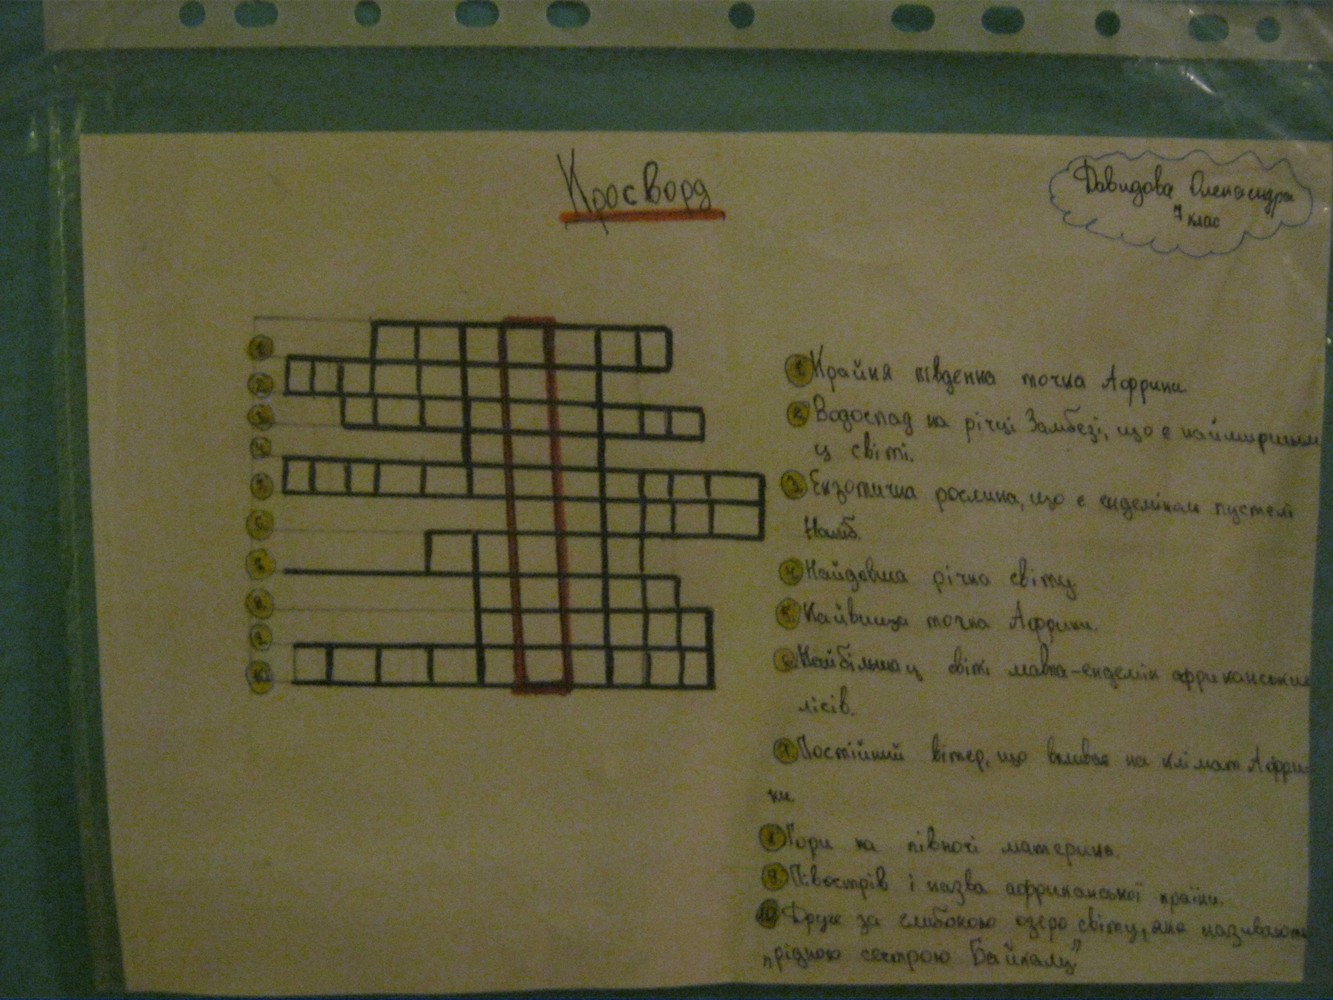 Кросворд
Давидова Олександра
7 клас
1.
2.
3.
4.
5.
6.
7.
8.
9.
10.
1. Крайня південна точка Африки
2. Водоспад на річці Замбезі, що є найширшим
у світі.
3. Екзотична рослина, що є ендеміком пустелі
Наміб.
4. Найдовша річка світу
5. Найвища точка Африки.
6. Найбільша у світі мавпа-ендемік африканських
лісів.
7. Постійний вітер, що впливає на клімат Афри-
ки.
8. Гори на півночі материка.
9. Півострів і назва африканської країни.
10. Друге за глибиною озеро світу, яке називають
"рідною сестрою Байкалу"